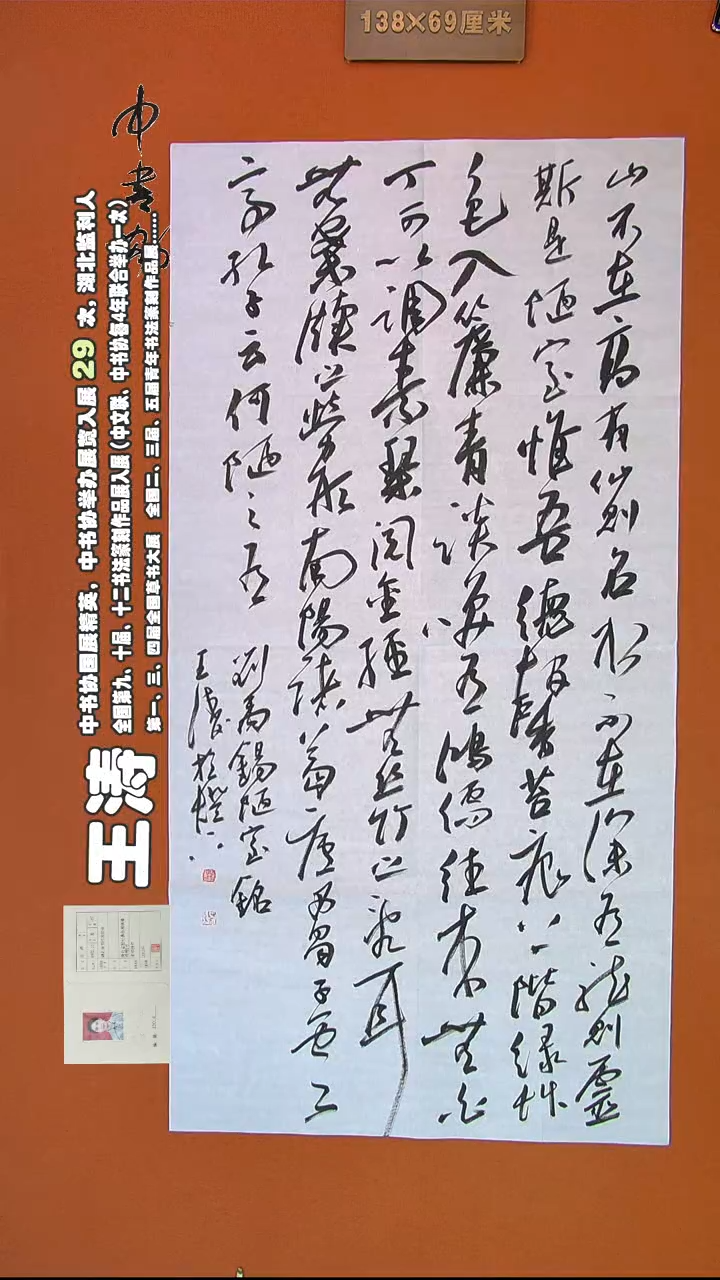 138×69厘米
山不在高有仙則名水不在深有龍則靈
斯是陋室惟吾德馨苔痕上階綠艸
色入簾青談笑有鴻儒往來無白
丁可以調素琴閱金經無絲竹之亂耳
無案牘之勞形南陽諸葛廬西蜀子雲
亭孔子云何陋之有
劉禹錫陋室銘
王濤於燈下
中书协国展精英，中书协举办展览入展29次，湖北监利人
全国第九、十届、十二书法篆刻作品展入展（中文联、中书协每4年联合举办一次）
第一、三、四届全国草书大展 全国二、三届、五届青年书法篆刻作品展......
王涛
中书